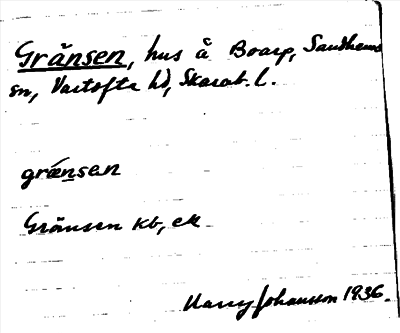 Gränsen, hus å Boarp, Sandhems
sn, Vartofta hd, Skarab. l.
grǽnsen
Gränsen kb, ek
Harry Johansson 1936.